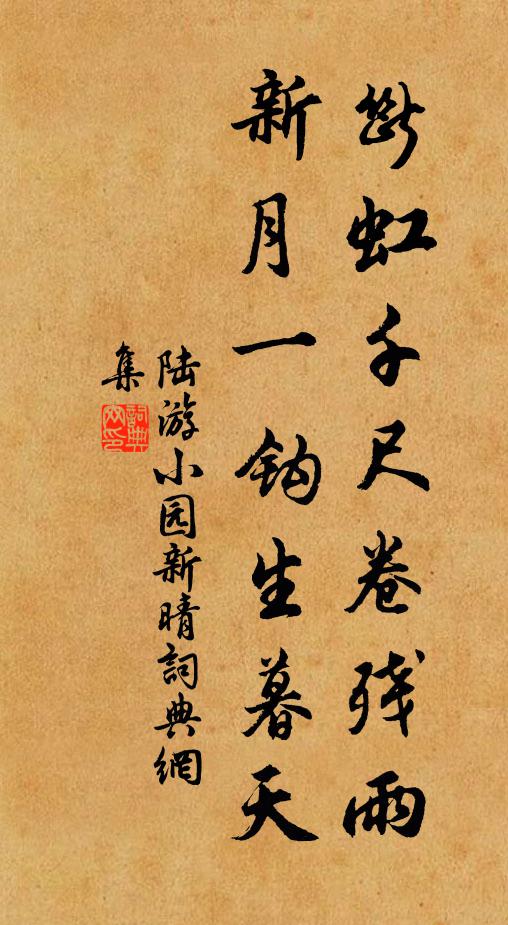 断虹千尺卷残雨
新月一钩生暮天
陆游小园新晴詞典網
集
詞典
网印